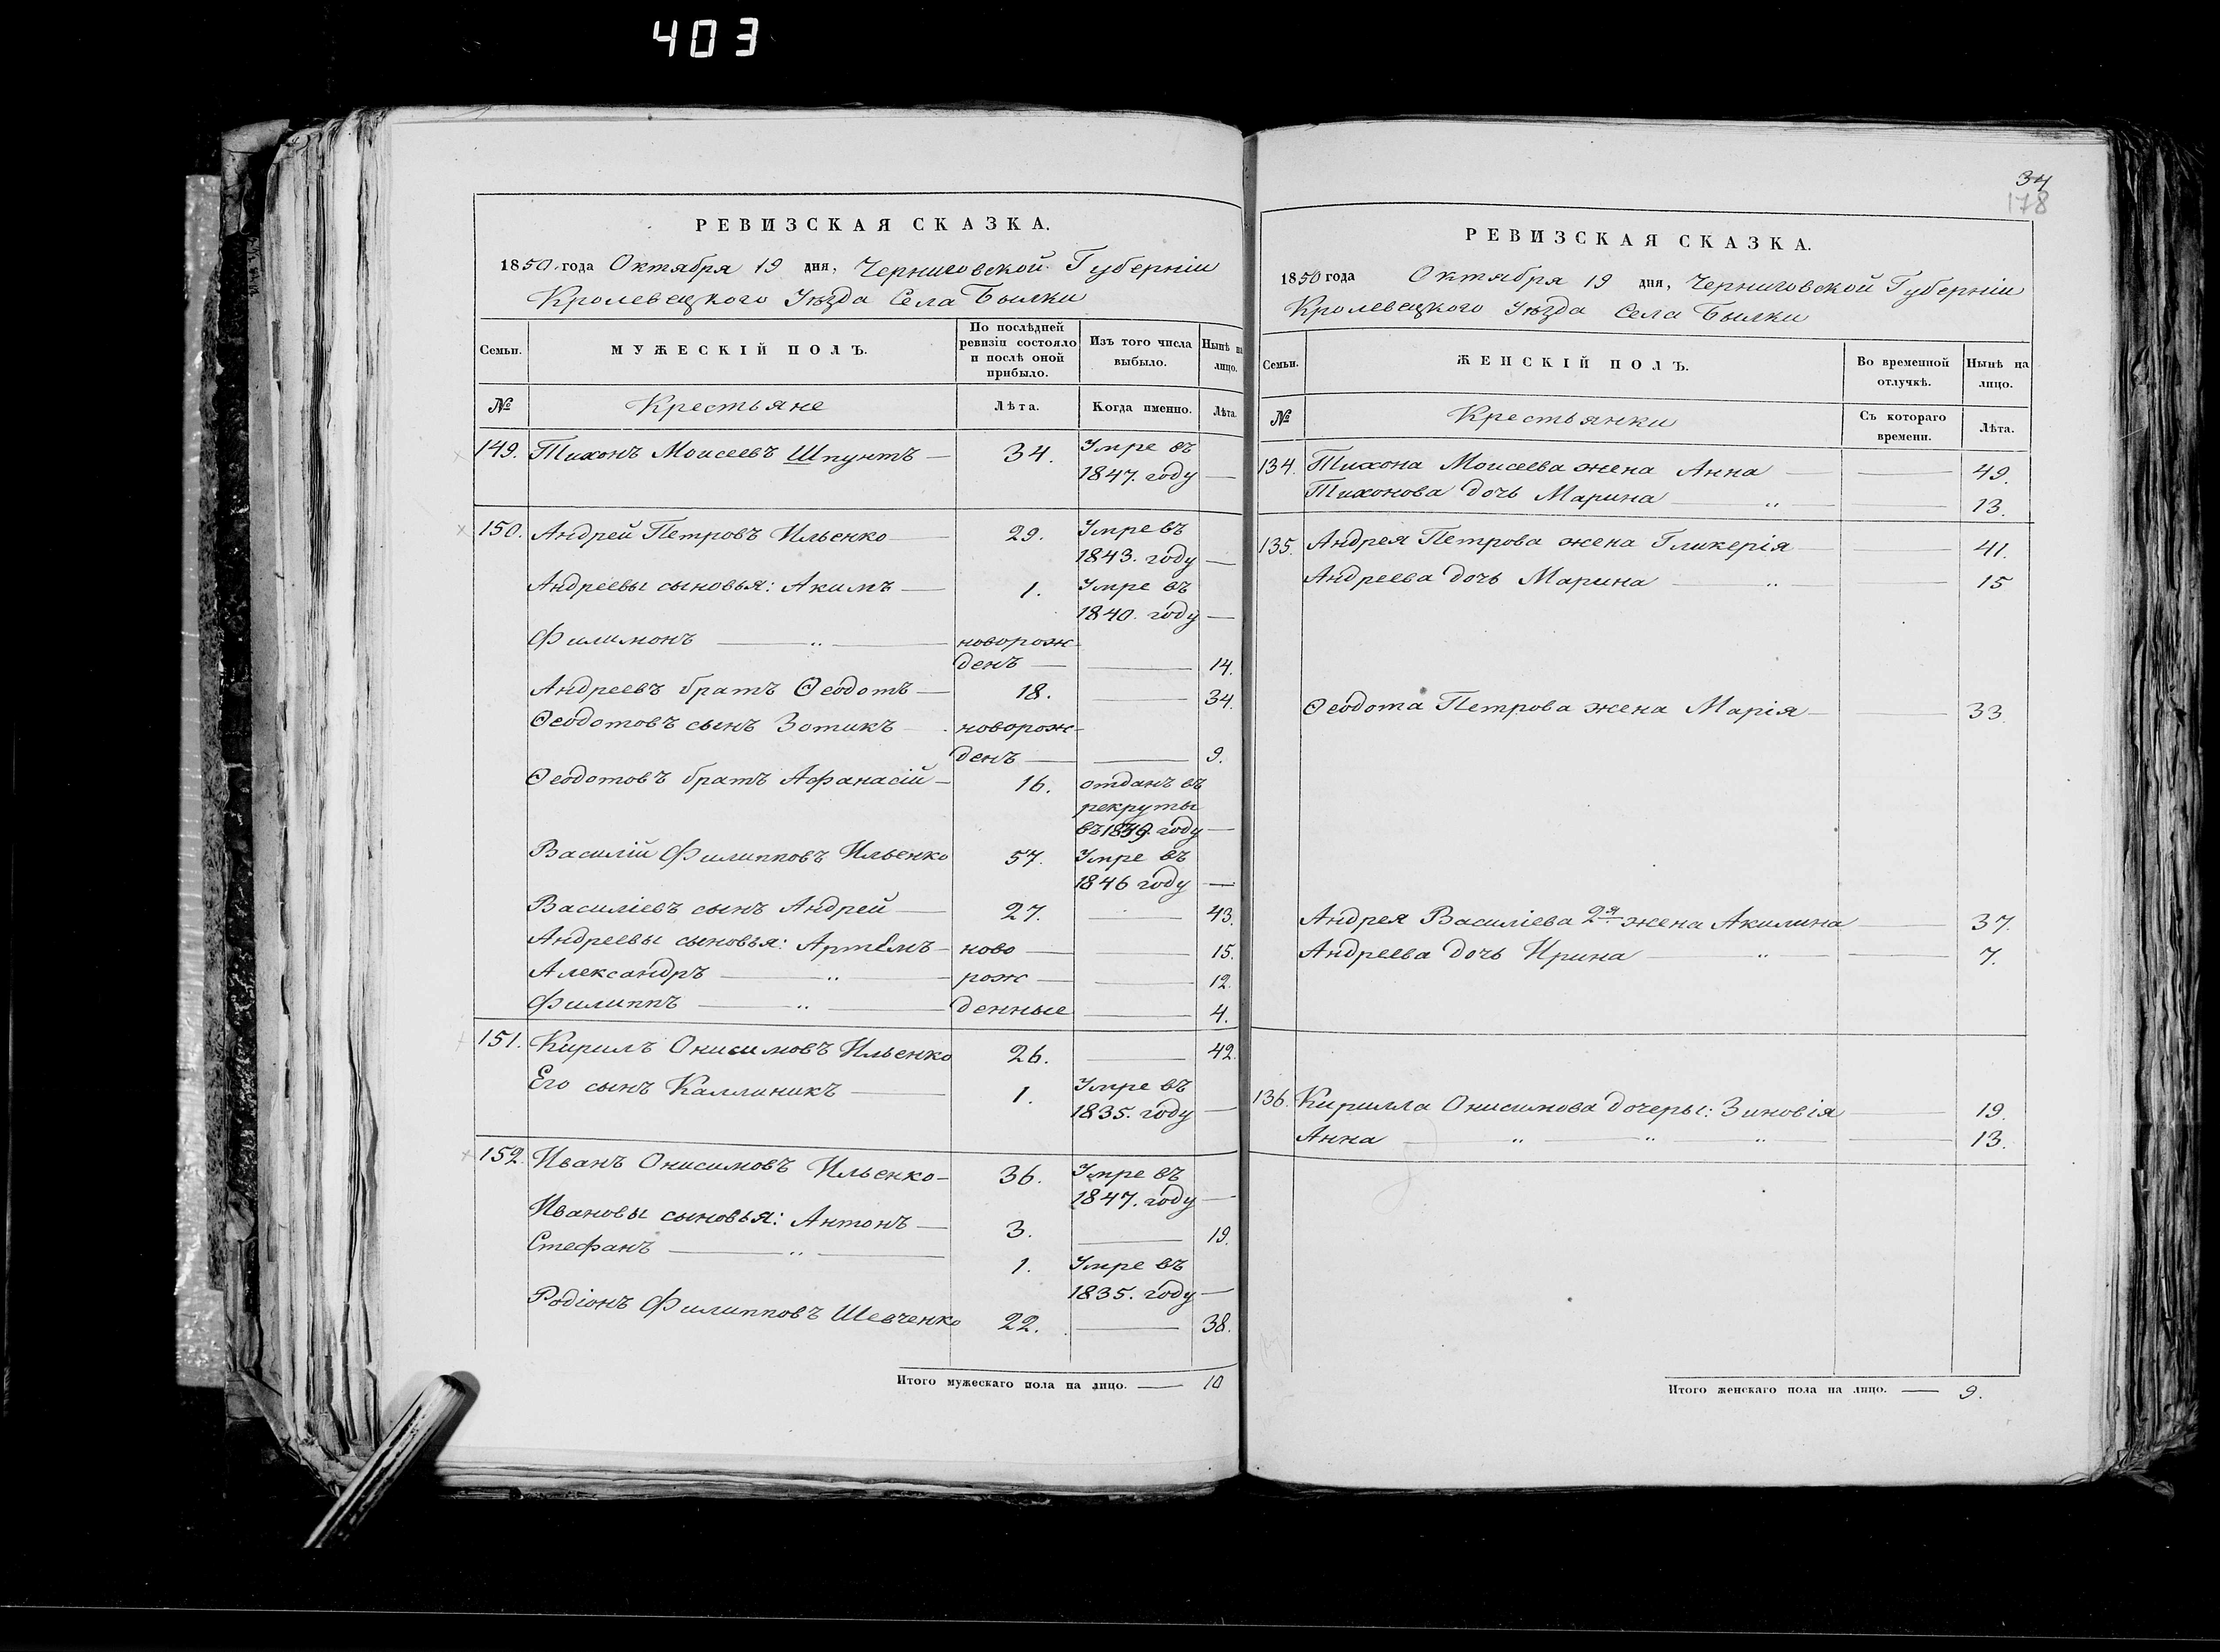 403
РЕВИЗСКАЯ СКАЗКА.
1850 года Октября 19 дня, Черниговской Губерніи
Кролевецкого Уѣзда Села Былки
Семьи. МУЖЕСКІЙ ПОЛЪ. По послѣдней ревизіи состояло и послѣ оной прибыло. Изъ того числа выбыло. Нынѣ на лицо.
№ Крестьяне Лѣта. Когда именно. Лѣта.
149. Тихонъ Моисеевъ Шпунтъ — 34. Умре въ
1847. году —
150. Андрей Петровъ Ильенко — 29. Умре въ
1843. году —
Андреевы сыновья: Акимъ — 1. Умре въ
1840. году —
Филимонъ — „ — новорож-
денъ — — 14.
Андреевъ братъ Ѳеодотъ — 18. — 34.
Ѳеодотовъ сынъ Зотикъ — новорож-
денъ — — 9.
Ѳеодотовъ братъ Афанасій — 16. отданъ въ
рекруты
въ 1839. году —
Василій Филипповъ Ильенко 57. Умре въ
1846 году —
Василіевъ сынъ Андрей — 27. — 43.
Андреевы сыновья: Артемъ — ново — — 15.
Александръ — „ — рож — — 12.
Филиппъ — „ — денные — 4.
151. Кирилъ Онисимовъ Ильенко 26. — 42.
Его сынъ Каллиникъ — 1. Умре въ
1835. году —
152. Иванъ Онисимовъ Ильенко — 36. Умре въ
1847. году —
Ивановы сыновья: Антонъ — 3. — 19.
Стефанъ — „ — 1. Умре въ
1835. году —
Родіонъ Филипповъ Шевченко 22. — 38.
Итого мужескаго пола на лицо. — 10
34
178
РЕВИЗСКАЯ СКАЗКА.
1850 года Октября 19 дня, Черниговской Губерніи
Кролевецкого Уѣзда Села Былки
Семьи. ЖЕНСКІЙ ПОЛЪ. Во временной отлучкѣ. Нынѣ на лицо.
№ Крестьянки Съ котораго времени. Лѣта.
134. Тихона Моисеева жена Анна — — 49.
Тихонова дочь Марина — „ — — 13.
135. Андрея Петрова жена Гликерія — 41.
Андреева дочь Марина — „ — — 15
Ѳеодота Петрова жена Марія — — 33.
Андрея Василіева 2я жена Акилина — 37.
Андреева дочь Ирина — „ — — 7.
136. Кирилла Онисимова дочеры: Зиновія — 19.
Анна — „ — „ — „ — — 13.
Итого женскаго пола на лицо. — 9.